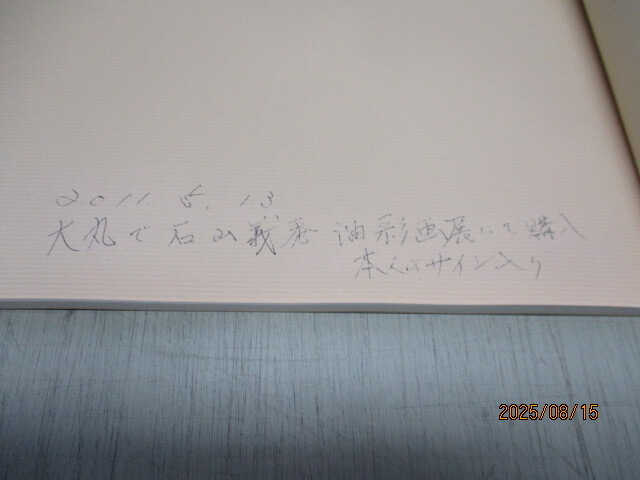 2011 5. 13
大丸で石山義秀 油彩画展にて購入
本人のサイン入り
2025/08/15